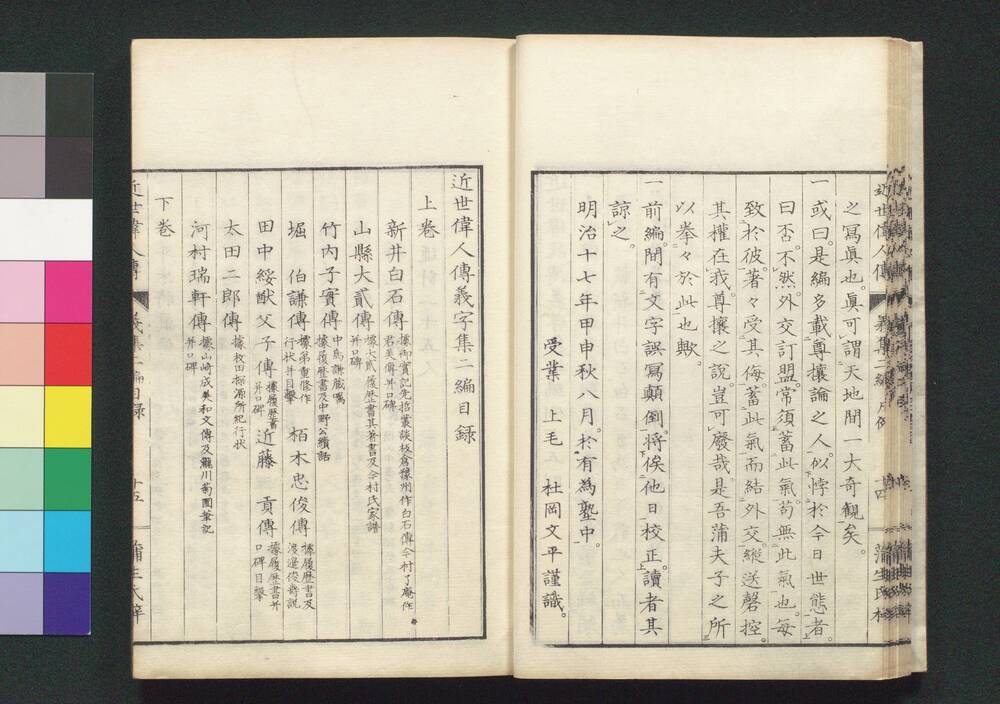 之寫眞也。眞可謂天地間一大奇觀矣。
一或曰。是編多載尊攘論之人。似悖於今日世態者。
曰。否。不然。外交訂盟。常須蓄此氣。苟無此氣也。每
致於彼。著々受其侮。蓄此氣而結外交。縱送磬控。
其權在我。尊攘之說。豈可廢哉。是吾蒲夫子之所
以拳々於此也歟。
一前編。間有文字誤寫顛倒。將俟他日校正。讀者其
諒之。
明治十七年甲申秋八月。於有爲塾中。
受業 上毛 杜岡文平謹識。
近世偉人傳義字集二編目錄
上卷
新井白石傳 據御實記先哲叢談板倉豫州作白石傳今村了庵作
君美傳并口碑
山縣大貳傳 據大貳履歷書其著書及今村氏家譜
并口碑
竹內子實傳 中島謙藏囑
據履歷書及中野公續話
堀 伯謙傳 據弟重條作
行狀并目擊
栢木忠俊傳 據履歷書及
渡邊俊齋說
田中綏猷父子傳 據履歷書
并口碑
近藤 貢傳 據履歷書并
口碑目擊
太田二郎傳 據枚田
所紀行狀
河村瑞軒傳 據山崎成美和文傳及瀧川
筆記
并口碑
下卷
近世偉人傳 義集二編目錄 十五 蒲生氏梓